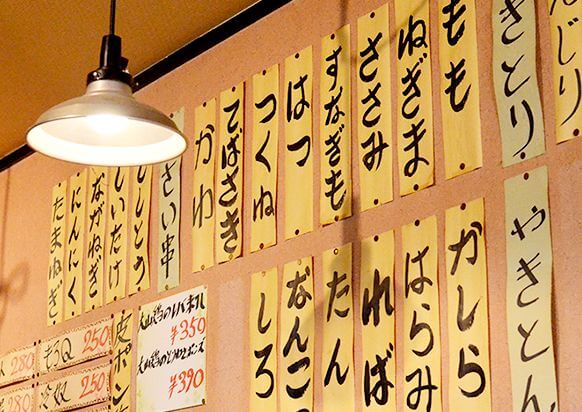 んじり
やきとり
もも
ねぎま
ささみ
すなぎも
はつ
つくね
てばさき
かわ
さい串
ししとう
しいたけ
ながねぎ
にんにく
たまねぎ
やきとん
かしら
はらみ
ればー
たん
なんこ
しろ
¥350
¥390
皮ポン
もろQ 250
冷奴 250
280
280